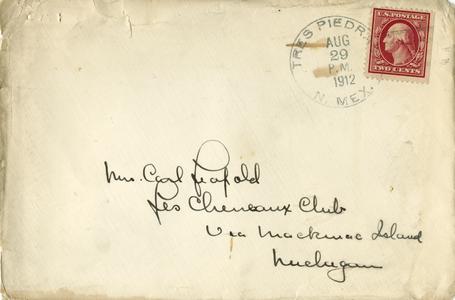 TRES PIEDR
AUG
29
P.M.
1912
N. MEX.
U.S. POSTAGE
TWO CENTS
Mrs. Carl Leopold
Les Cheneaux Club
Via Mackinac Island
Michigan